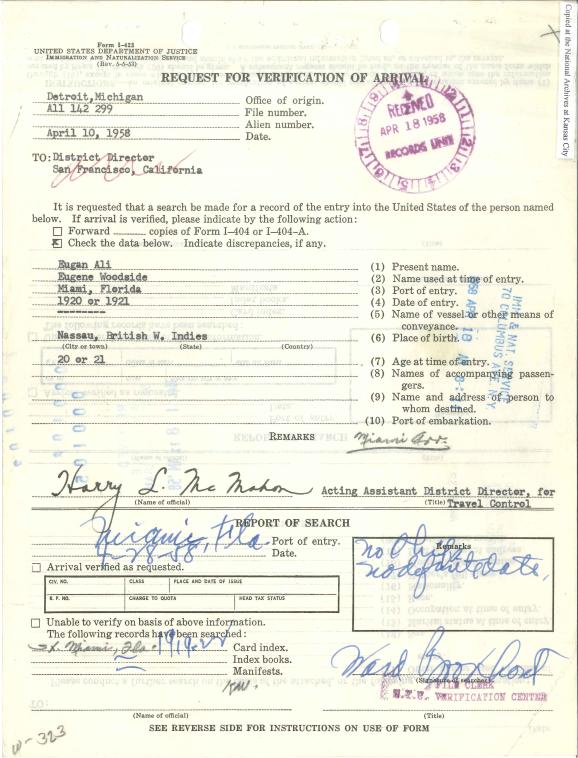 Copied at the National Archives at Kansas City
Form I-423
UNITED STATES DEPARTMENT OF JUSTICE
IMMIGRATION AND NATURALIZATION SERVICE
(Rev. 5-6-53)
REQUEST FOR VERIFICATION OF ARRIVAL
Detroit, Michigan Office of origin.
All 142 299 File number.
Alien number.
April 10, 1958 Date.
RECEIVED
APR 18 1958
RECORDS UNIT
TO: District Director
San Francisco, California
It is requested that a search be made for a record of the entry into the United States of the person named
below. If arrival is verified, please indicate by the following action:
Forward copies of Form I-404 or I-404-A.
x Check the data below. Indicate discrepancies, if any.
Eugan Ali (1) Present name.
Eugene Woodside (2) Name used at time of entry.
Miami, Florida (3) Port of entry.
1920 or 1921 (4) Date of entry.
-------- (5) Name of vessel or other means of
conveyance.
Nassau, British W. Indies (6) Place of birth.
(City or town) (State) (Country)
20 or 21 (7) Age at time of entry.
(8) Names of accompanying passen-
gers.
(9) Name and address of person to
whom destined.
(10) Port of embarkation.
IMM & NAT. SERVICE
70 COLUMBUS AVE. NY
REMARKS Miami
Harry L. McMahon Acting Assistant District Director, for
(Name of official) (Title) Travel Control
REPORT OF SEARCH
Miami, Fla. Port of entry.
4-28-58 Date.
Remarks
no
no definite date,
Arrival verified as requested.
CIV. NO. CLASS PLACE AND DATE OF ISSUE
R. P. NO. CHARGE TO QUOTA HEAD TAX STATUS
Unable to verify on basis of above information.
The following records have been searched:
Miami, Fla. 1919-22 Card index.
Index books.
Manifests.
Ward
(Signature of searcher)
FILE CLERK
VERIFICATION CENTER
TO:
(Name of official) (Title)
SEE REVERSE SIDE FOR INSTRUCTIONS ON USE OF FORM
W-323